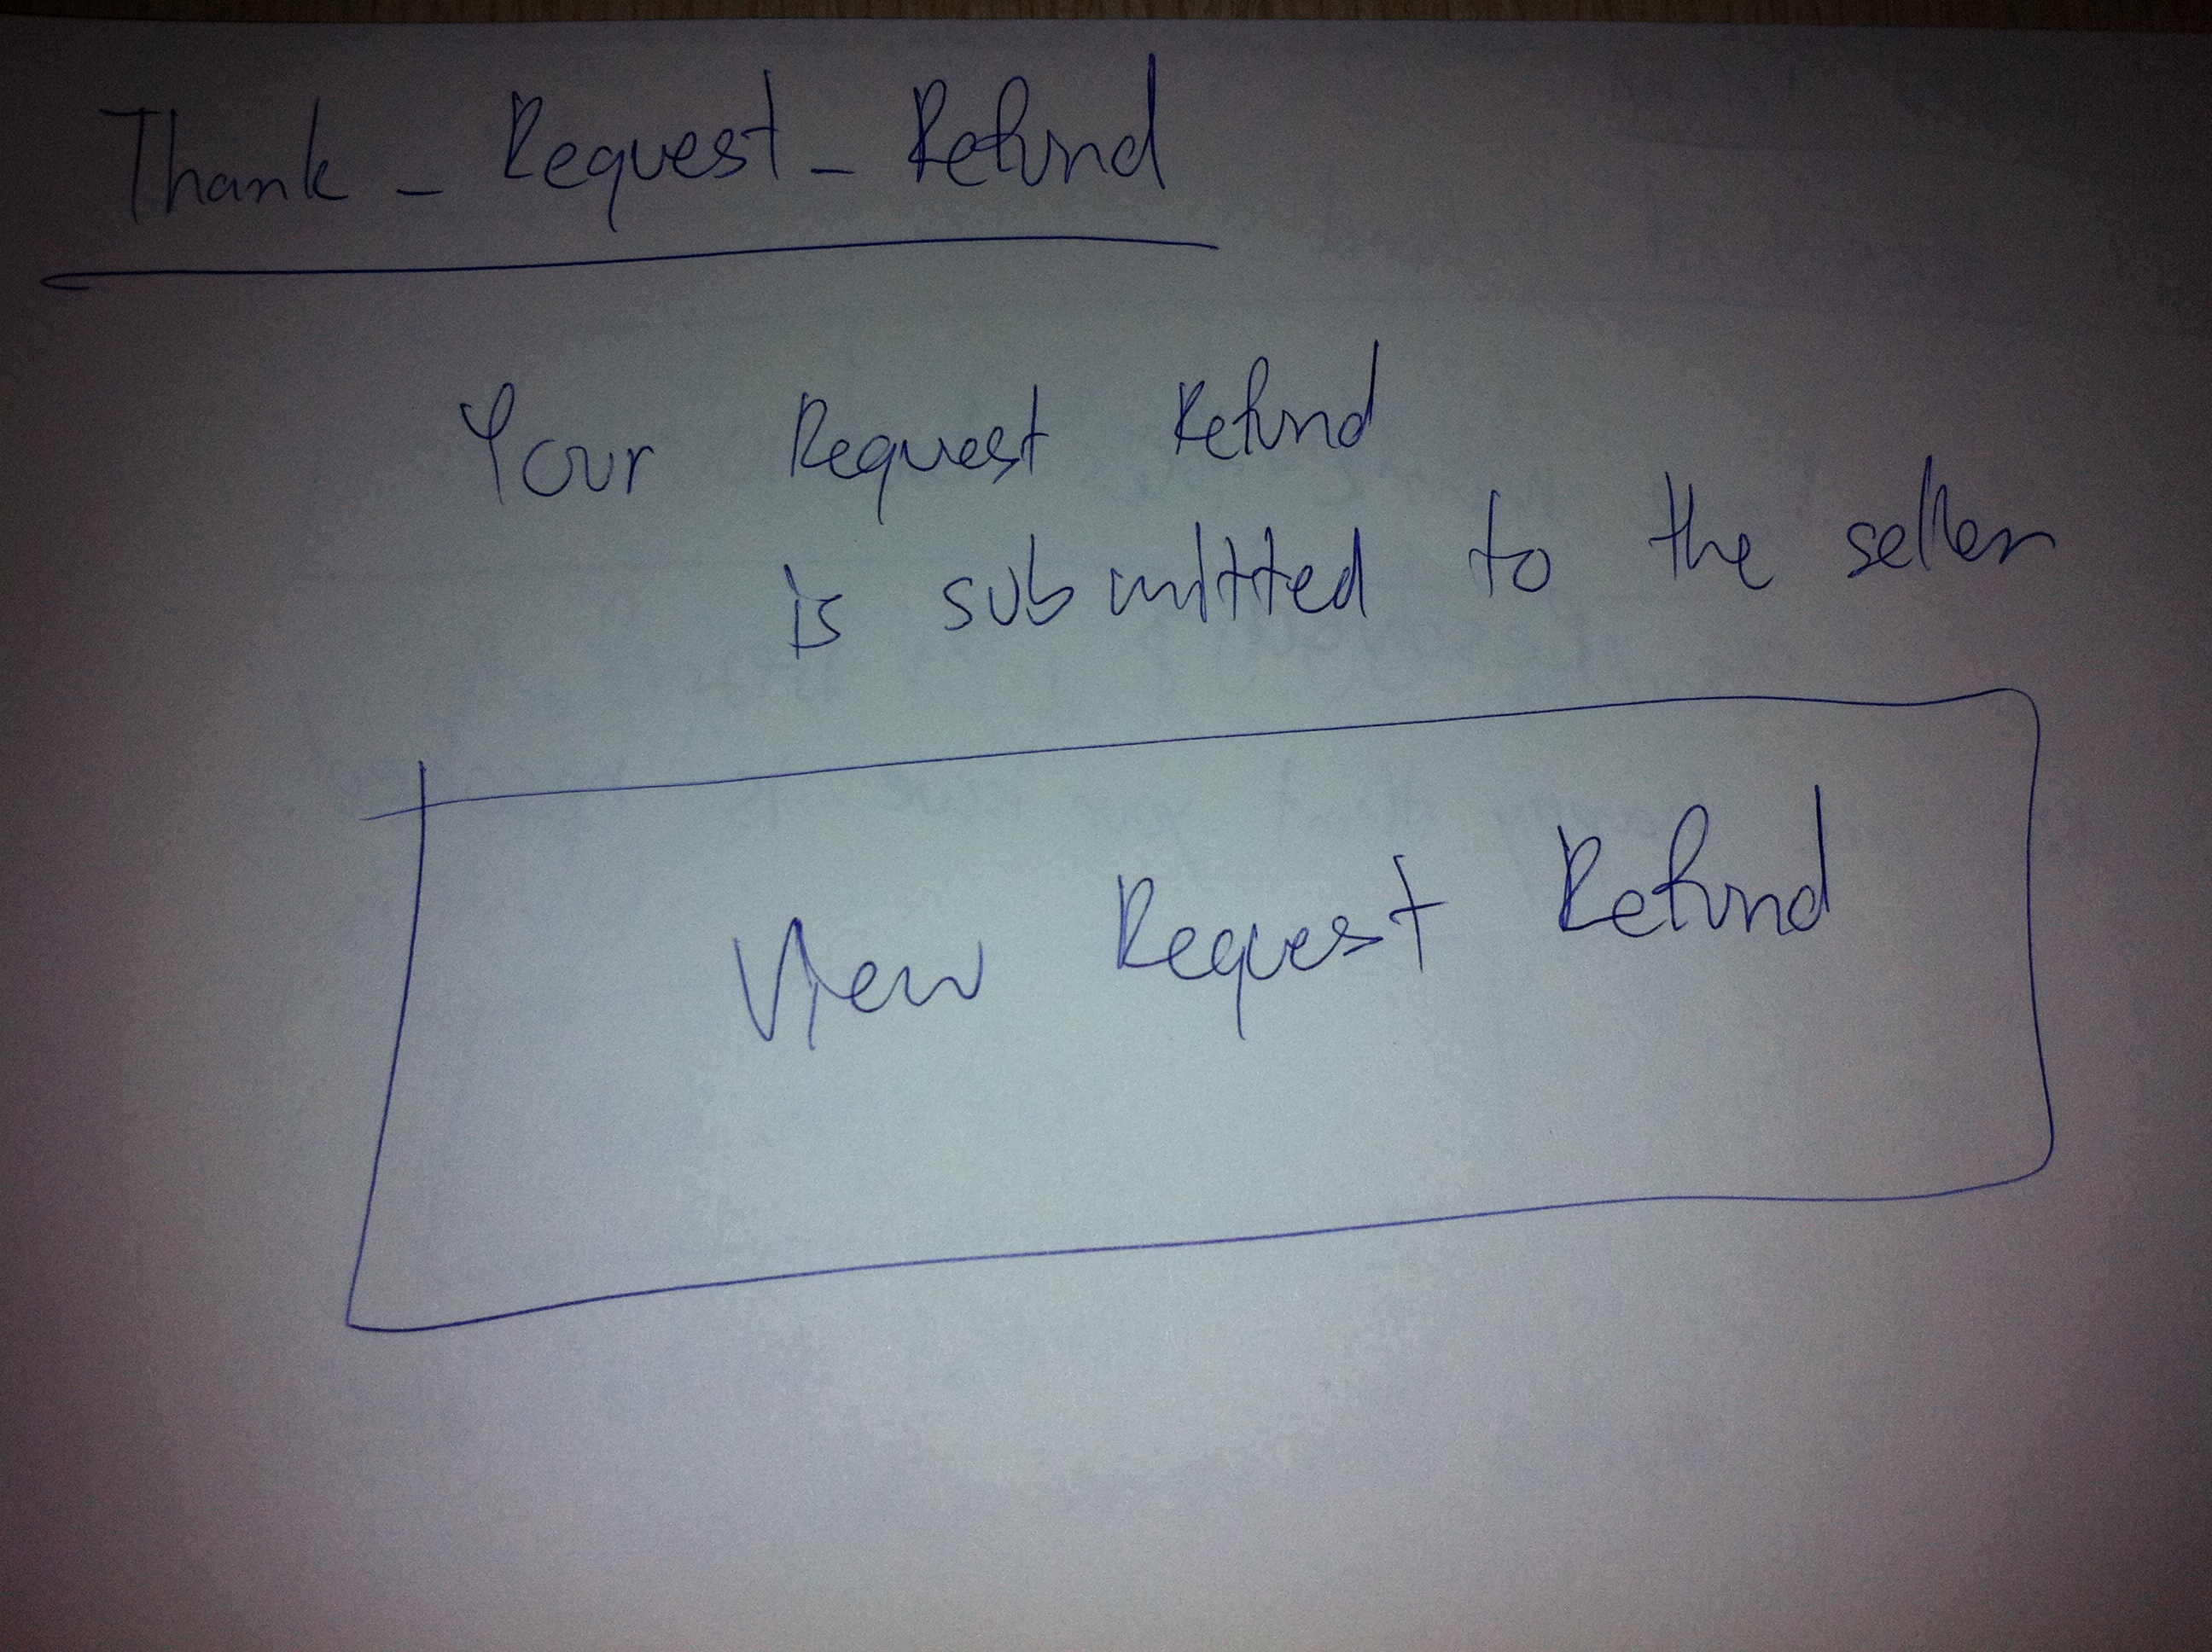 Thank - Request - Refund
Your Request Refund
is submitted to the seller
View Request Refund